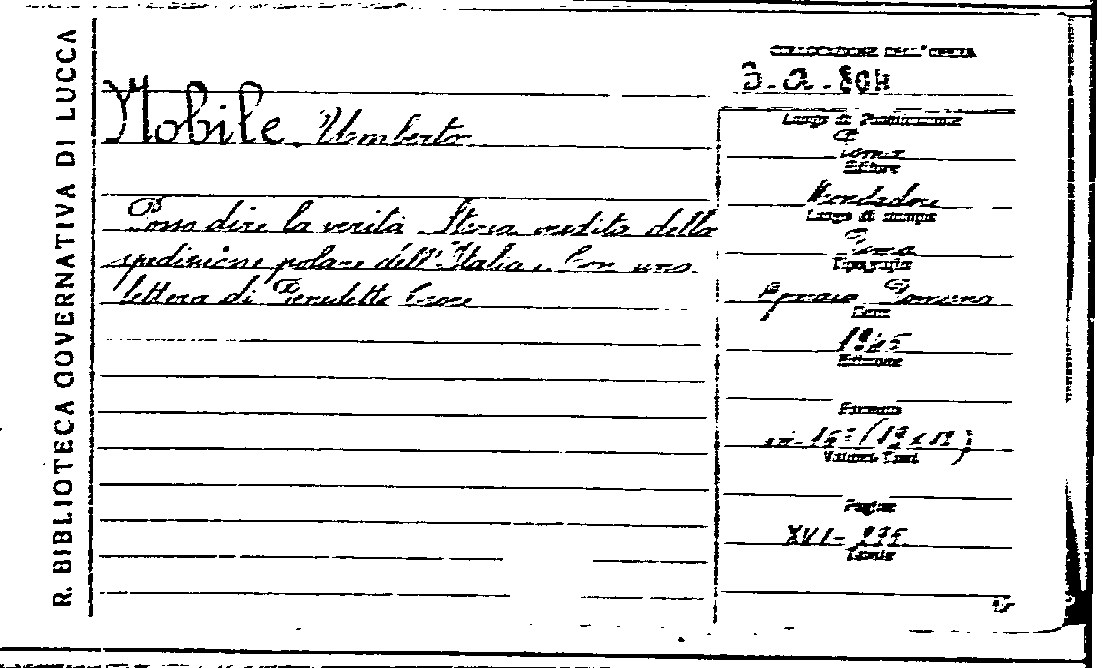 R. BIBLIOTECA GOVERNATIVA DI LUCCA
Nobile Umberto
Posso dire la verità Storia inedita della
spedizione polare dell'Italia. Con una
lettera di Benedetto Croce
COLLOCAZIONE DELL'OPERA
3. a. 804
Luogo di Pubblicazione
Roma
Editore
Mondadori
Luogo di stampa
Roma
Tipografia
Romana
Data
1945
Edizione
Formato
in-16° (19x12)
Volumi Tomi
Pagine
XVI-
Tavole